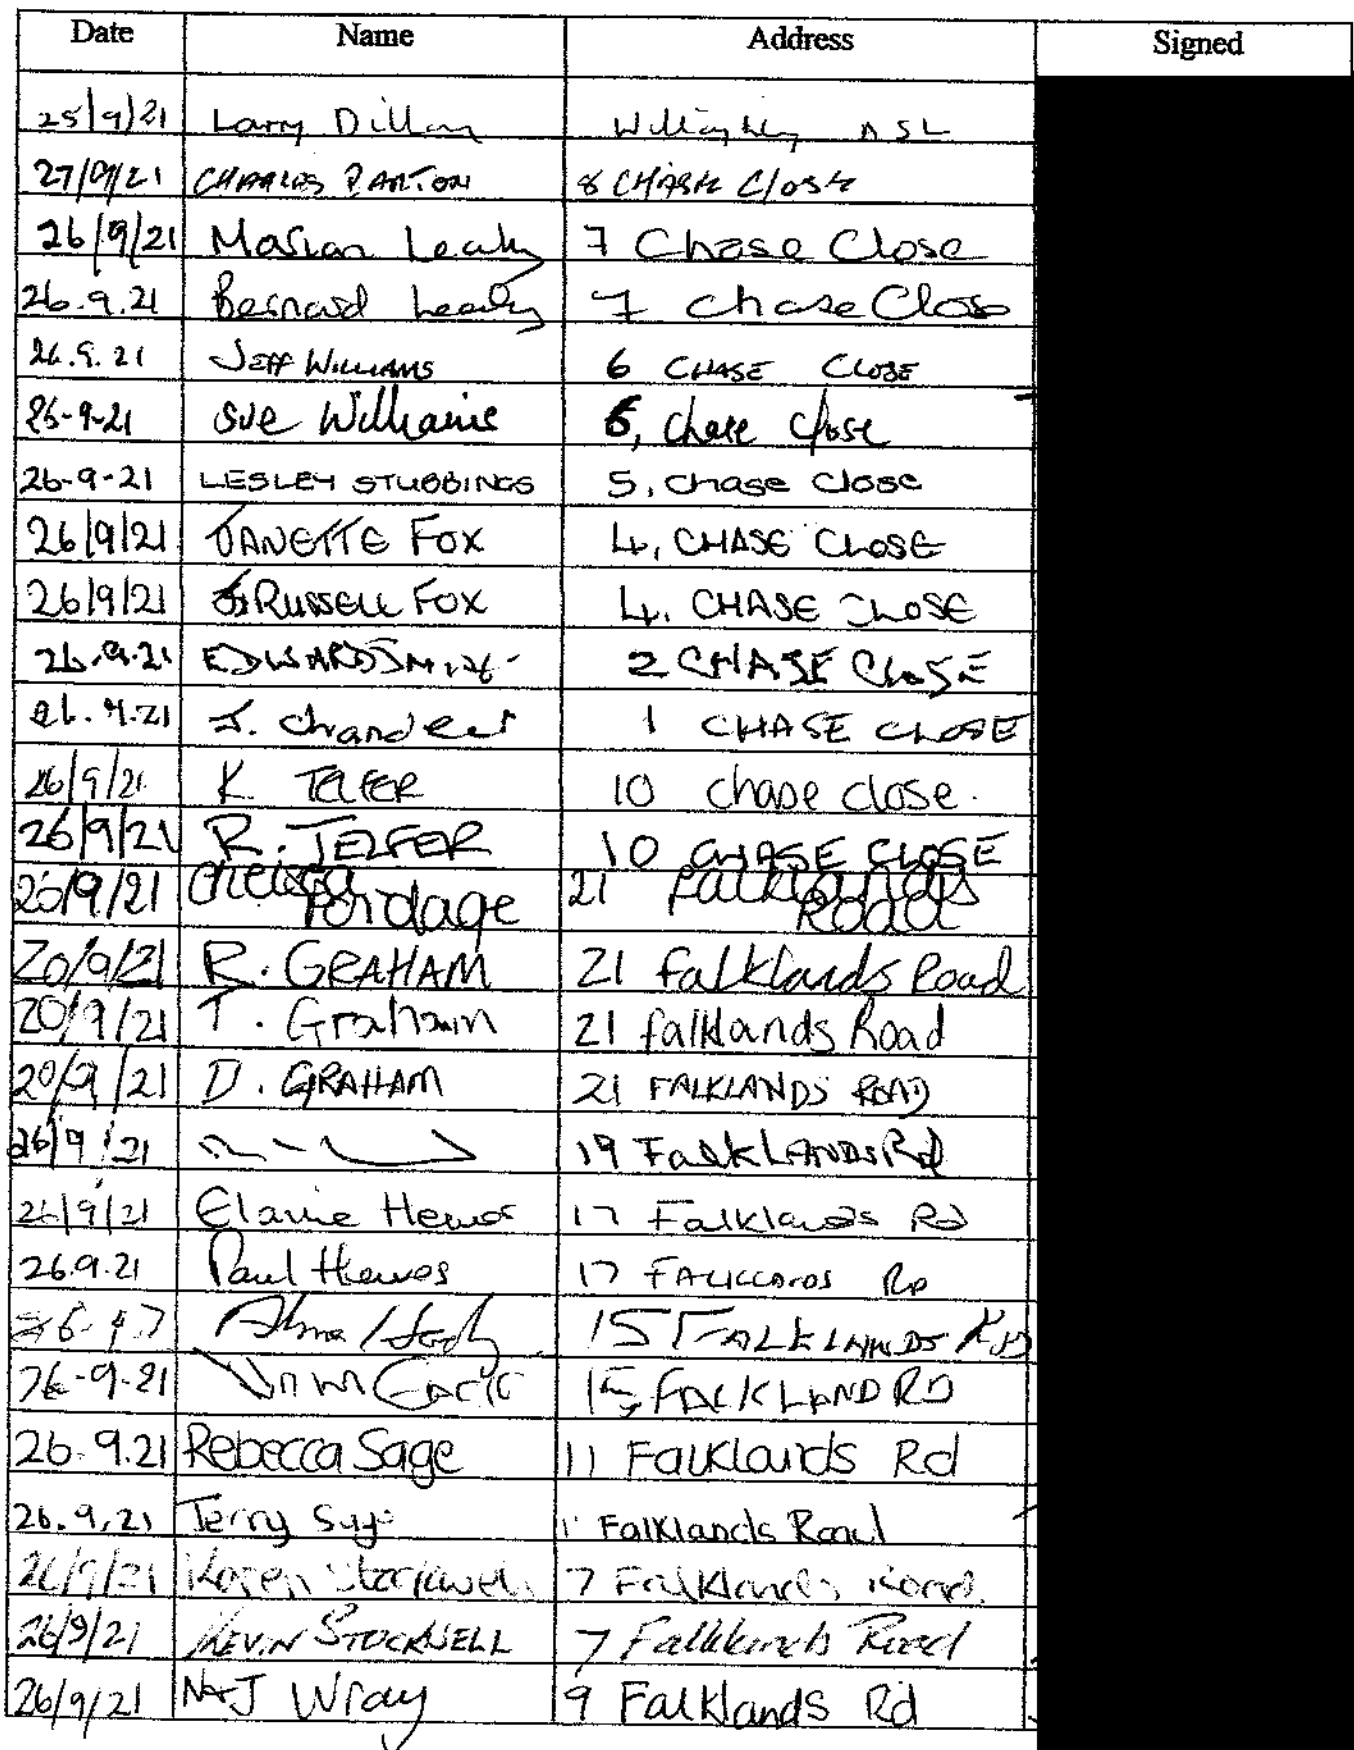 Date Name Address Signed
25/9/21 Larry Dillon
27/9/21 CHARLES PARTON 8 CHASE Close
26/9/21 Marian Leahy 7 Chase Close
26.9.21 Bernard Leahy 7 Chase Close
26.9.21 JEFF WILLIAMS 6 CHASE CLOSE
26-9-21 Sue Williams 6, Chase Close
26-9-21 LESLEY STUBBINGS 5, Chase Close
26/9/21 JANETTE FOX 4, CHASE CLOSE
26/9/21 RUSSELL FOX 4, CHASE CLOSE
26.9.21 EDWARD SMITH 2 CHASE CLOSE
26.9.21 J. Chandler 1 CHASE CLOSE
26/9/21 K. TELFER 10 Chase close.
26/9/21 R. TELFER 10 CHASE CLOSE
20/9/21 Chelsea Pordage 21 Falklands Road
20/9/21 R. GRAHAM 21 Falklands Road
20/9/21 T. Graham 21 falklands Road
20/9/21 D. GRAHAM 21 FALKLANDS ROAD
26/9/21 19 FALKLANDS Rd
26/9/21 Elaine Hewes 17 Falklands Rd
26.9.21 Paul Hewes 17 FALKLANDS RD
15 FALKLANDS RD
26-9-21 15, FALKLAND RD
26.9.21 Rebecca Sage 11 Falklands Rd
26.9.21 Terry Sage 11 Falklands Road
26/9/21 Karen Stockwell 7 Falklands Road.
26/9/21 KEVIN STOCKWELL 7 Falklands Road
26/9/21 N+J Wray 9 Falklands Rd